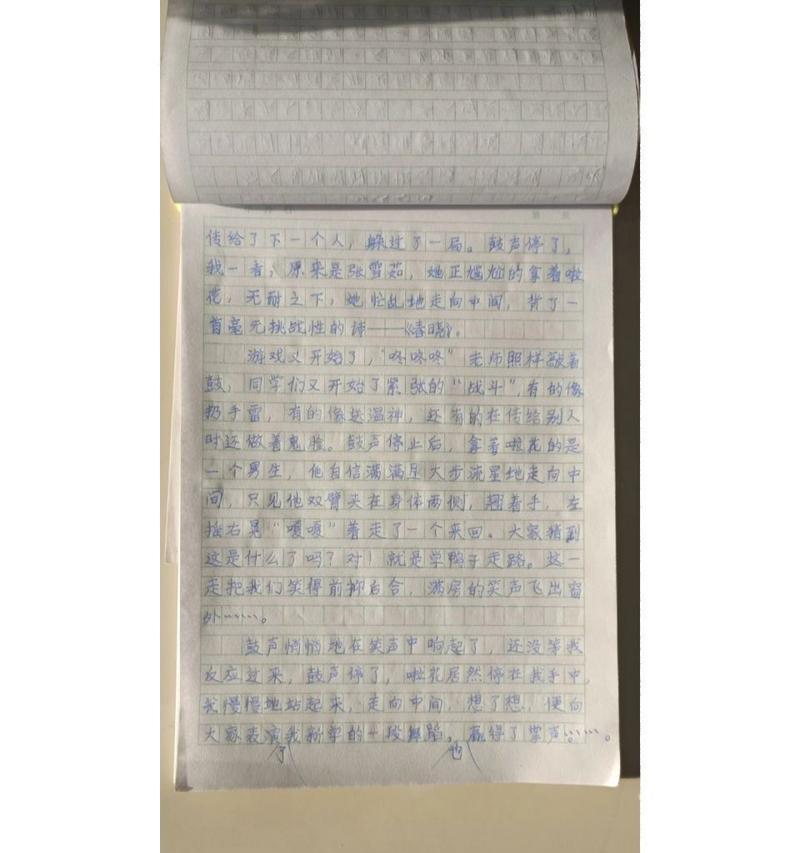 传给了下一个人，躲过了一局。鼓声停了，
我一看，原来是张雪茹，她正尴尬的拿着啦
花，无耐之下，她忙乱地走向中间，背了一
首毫无挑战性的诗——《春晓》。
游戏又开始了，“咚咚咚”老师照样敲着
鼓，同学们又开始了紧张的“战斗”，有的像
扔手雷，有的像送温神，还有的在传给别人
时还做着鬼脸。鼓声停止后，拿着啦花的是
一个男生，他自信满满大步流星地走向中
间，只见他双臂夹在身体两侧，翘着手，左
摇右晃“嘎嘎”着走了一个来回。大家猜到
这是什么了吗？对！就是学鸭子走路。这一
走把我们笑得前抑后合，满房的笑声飞出窗
外……。
鼓声悄悄地在笑声中响起了，还没等我
反应过来，鼓声停了，啦花居然停在我手中，
我慢慢地站起来，走向中间，想了想，便向
大家表演了我新学的一段舞蹈。也赢得了掌声……。